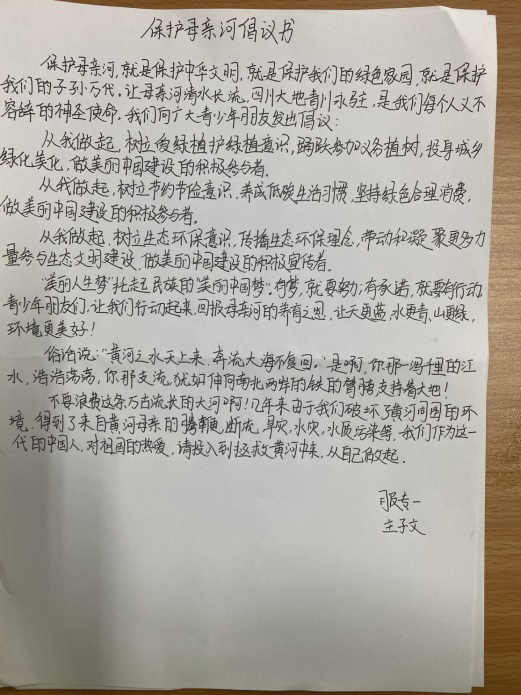 保护母亲河倡议书
保护母亲河,就是保护中华文明,就是保护我们的绿色家园,就是保护
我们的子孙万代。让母亲河清水长流,四川大地青川永驻,是我们每个人义不
容辞的神圣使命。我们向广大青少年朋友发出倡议:
从我做起,树立爱绿植护绿植意识,踊跃参加义务植树,投身城乡
绿化美化,做美丽中国建设的积极参与者。
从我做起,树立节约节俭意识,养成低碳生活习惯,坚持绿色合理消费,
做美丽中国建设的积极参与者。
从我做起,树立生态环保意识,传播生态环保理念,带动和凝聚更多力
量参与生态文明建设,做美丽中国建设的积极宣传者。
"美丽人生梦"托起民族的"美丽中国梦"。有梦,就要努力;有承诺,就要有行动
青少年朋友们,让我们行动起来,回报母亲河的养育之恩,让天更蓝,水更青,山更绿,
环境更美好!
俗语说:"黄河之水天上来,奔流大海不复回。"是啊,你那一泻千里的江
水,浩浩荡荡,你那支流,犹如伸向南北两岸的铁的臂膀支持着大地!
不要浪费这条万古流长的大河啊!几年来由于我们破坏了黄河周围的环
境,得到了来自黄河母亲的断流,旱灾,水灾,水质污染等,我们作为这一
代的中国人,对祖国的热爱,请投入到拯救黄河中来,从自己做起.
服专一
主子文